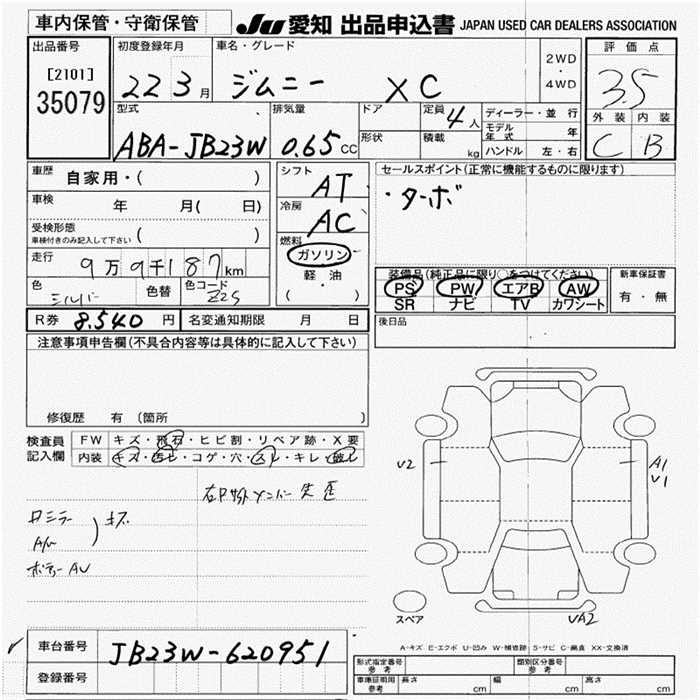 車内保管・守衛保管
JU 愛知 出品申込書 JAPAN USED CAR DEALERS ASSOCIATION
出品番号
[2101]
35079
初度登録年月
22 3月
車名・グレード
ジムニー XC
2WD
・
4WD
評価点
3.5
外装 内装
C B
型式
ABA-JB23W
排気量
0.65 CC
ドア
形状
定員 4人
積載 kg
ディーラー・並行
モデル年式 年
ハンドル 左・右
車歴 自家用・( )
車検 年 月( 日)
受検形態 ( )
車検付きのみ記入して下さい
走行 9万9千187km
色 シルバー 色替 色コード Z2S
シフト AT
冷房 AC
燃料
ガソリン
・
軽・油
( )
セールスポイント(正常に機能するものに限ります)
・ターボ
装備品(純正品に限り○をつけてください)
PS PW エアB AW
SR ナビ TV カワシート
新車保証書
有・無
R券 8,540円 名変通知期限 月 日
後日品
注意事項申告欄(不具合内容等は具体的に記入して下さい)
修復歴 有 (箇所 )
検査員
記入欄
FW キズ・飛石・ヒビ割・リペア跡・X要
内装 キズ・汚レ・コゲ・穴・スレ・キレ・破レ
キズ
U2
A1
V1
スペア
UA2
A-キズ E-エクボ U-凹み W-補修跡 S-サビ C-腐食 XX-交換済
車台番号 JB23W-620951
登録番号
形式指定番号
参考
類別区分番号
参考
車庫証明用
参考
長さ cm 幅 cm 高さ cm